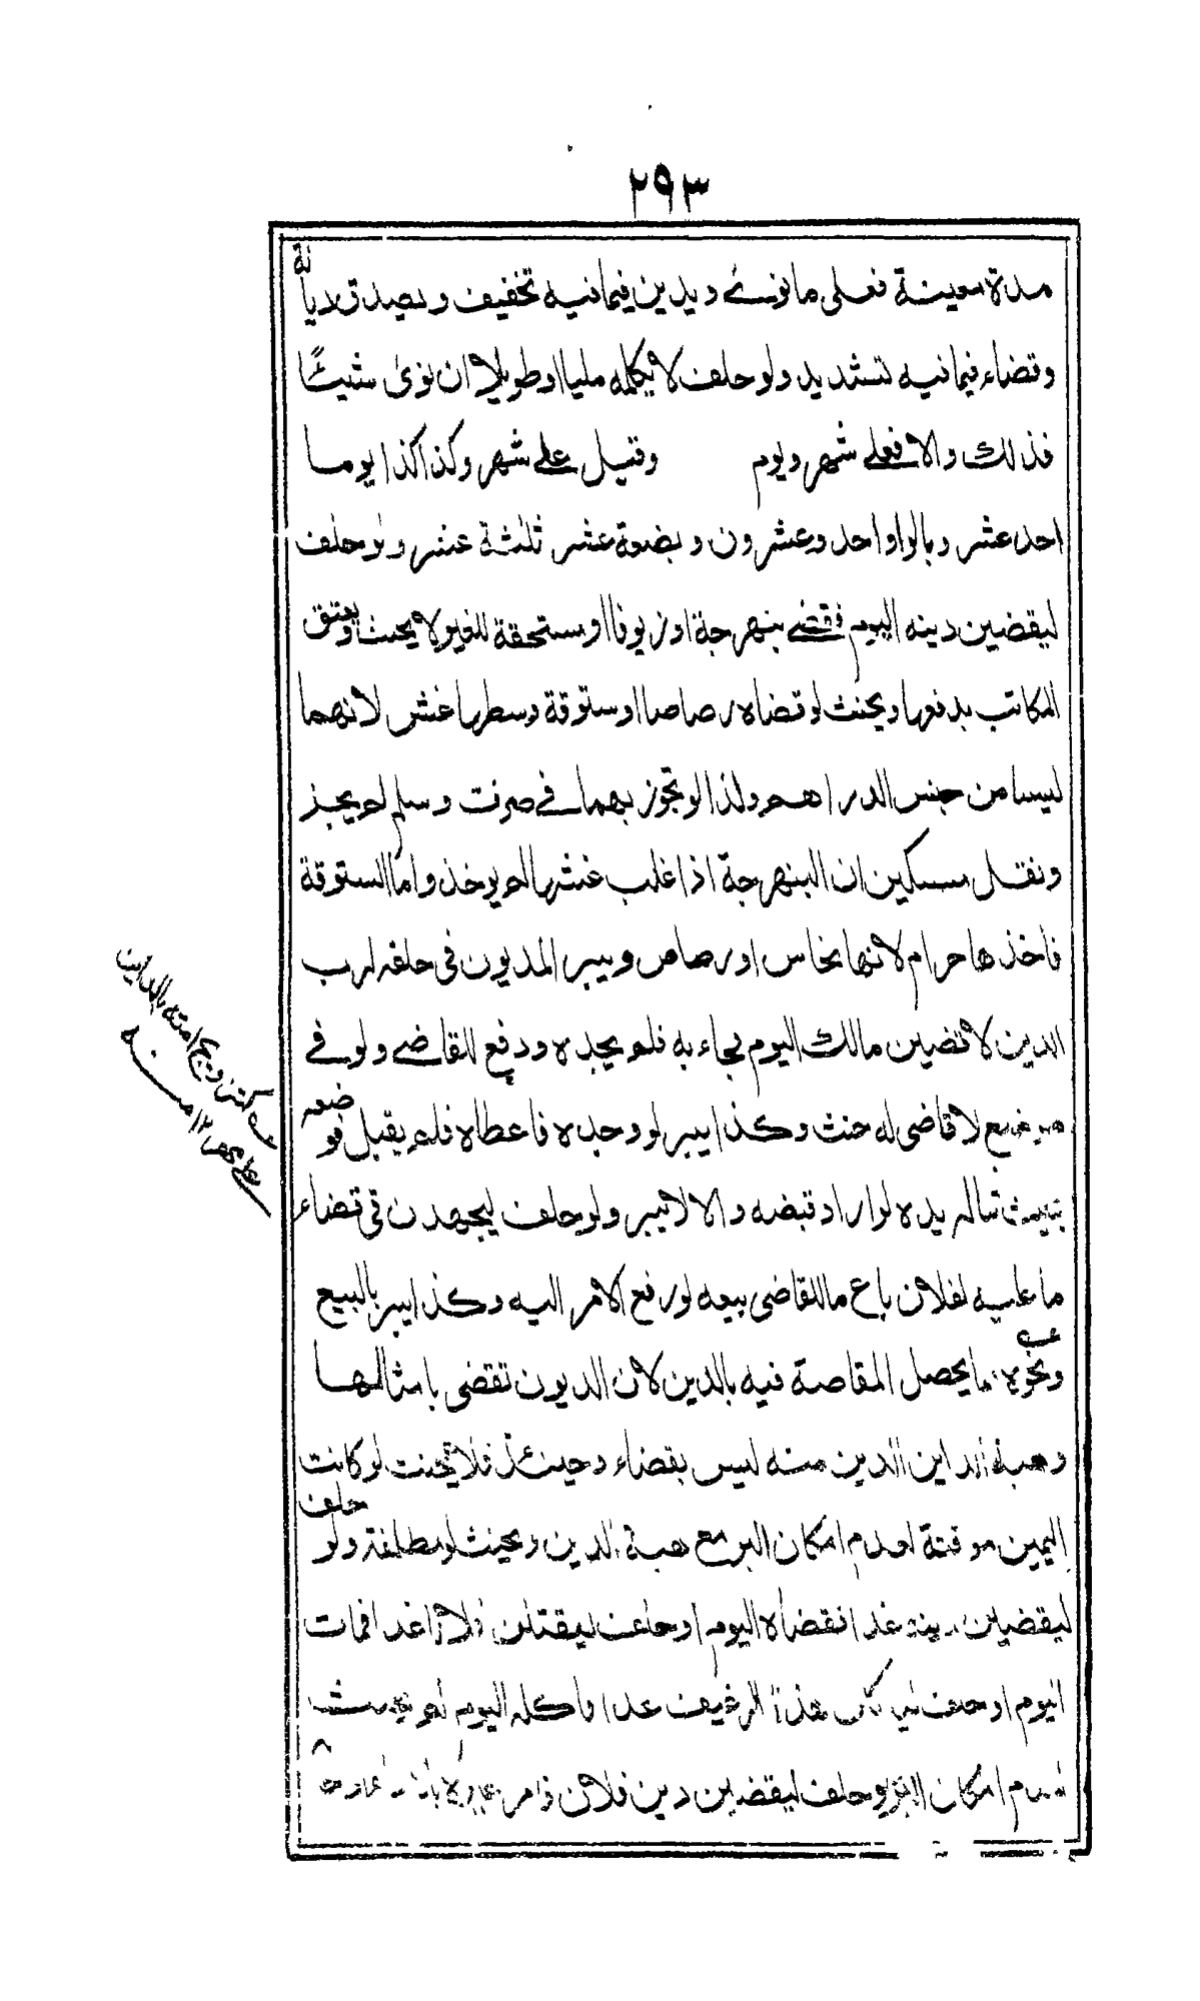 ٢٩٣
مدة معينة فعلى ما نوى ويدين فيما فيه تخفيف ويصدق ديانة
وقضاء فيما فيه تشديد ولو حلف لا يكلمه مليا او طويلا ان نوى شيئا
فذلك والا فعلى شهر ويوم وقيل على شهر وكذا كذا يوما
احد عشر وبالواو احد وعشرون وبضعة عشر ثلثة عشر ولو حلف
ليقضين دينه اليوم فقضى بنهرجة او زيوفا او مستحقة للغير لا يحنث ويعتق
المكاتب بدفعها ويحنث لو قضاه رصاصا او ستوقة وسطها غش لانهما
ليسا من جنس الدراهم ولذا لو تجوز بهما في صرف وسلم لم يجز
ونقل مسكين ان البنهرجة اذا غلب غشها لم يوخذ واما الستوقة
فاخذها حرام لانها نحاس او رصاص ويبر المديون في حلفه لرب
الدين لاقضين مالك اليوم فجاء به فلم يجده ودفع للقاضى ولو في
موضع لا قاضى له حنث وكذا يبر لو وجده فاعطاه فلم يقبل فوضعه
بحيث تناله يده لو اراد قبضه والا لا يبر ولو حلف ليجهدن في قضاء
ما عليه لفلان باع ما للقاضى بيعه لو رفع الامر اليه وكذا يبر بالبيع
ونحوه مما يحصل المقاصة فيه بالدين لان الديون تقضى بامثالها
وهبة الداين الدين منه ليس بقضاء وحينئذ فلا يحنث لو كانت
اليمين موقتة لعدم امكان البر مع هبة الدين ويحنث لو مطلقة ولو حلف
ليقضين دينه غدا فقضاه اليوم او حلف ليقتلن فلانا غدا فمات
اليوم او حلف لياكلن هذا الرغيف غدا فاكله اليوم لم يحنث
لعدم امكان البر ولو حلف ليقضين دين فلان فامر غيره بالاداء
كتزويج امته بالداين